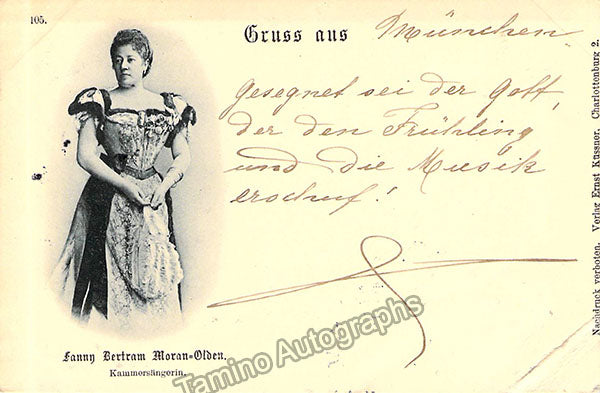 105.
Gruss aus München
Gesegnet sei der Gott,
der den Frühling
und die Musik
erschuf!
Fanny Bertram Moran-Olden.
Kammersängerin.
Nachdruck verboten. Verlag Ernst Küssner, Charlottenburg 2.
Tamino Autographs